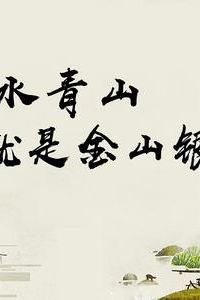 水青山
就是金山银